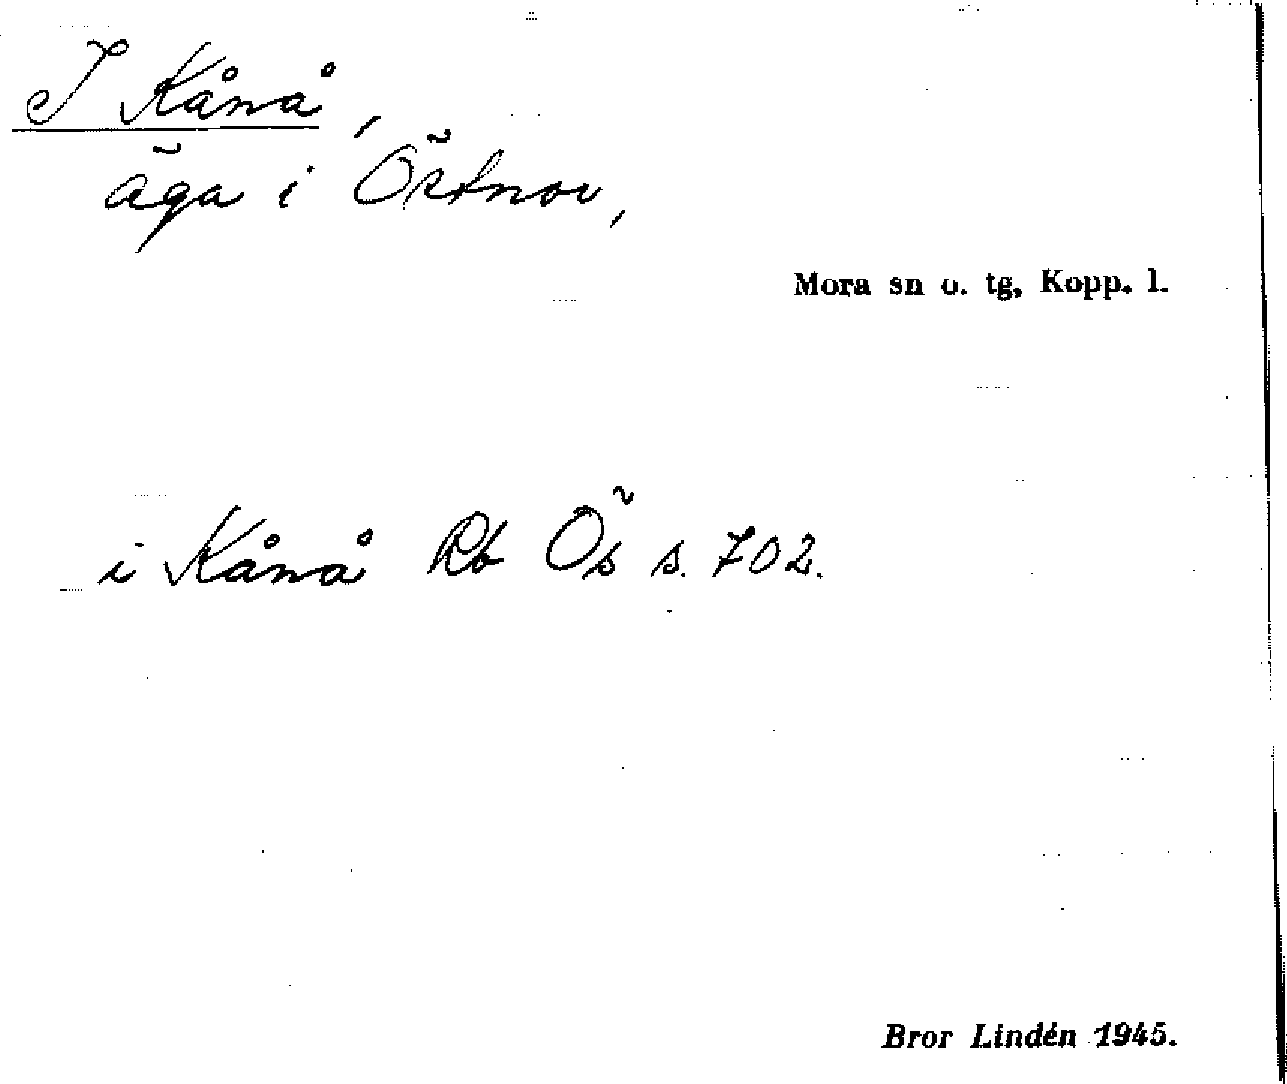 I Kånå,
äga i Östnor,
Mora sn o. tg, Kopp. l.
i Kånå Rb Ös s. 702.
Bror Lindén 1945.